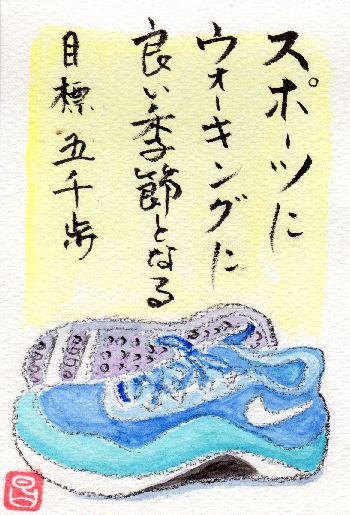 スポーツに
ウォーキングに
良い季節となる
目標 五千歩